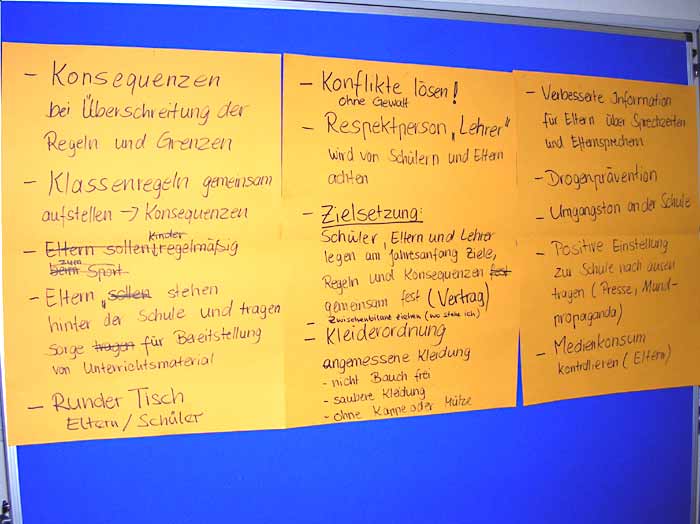 - Konsequenzen
bei Überschreitung der
Regeln und Grenzen
- Klassenregeln gemeinsam
aufstellen → Konsequenzen
- Eltern sollen Kinder regelmäßig
beim zum Sport
- Eltern sollen stehen
hinter der Schule und tragen
sorge tragen für Bereitstellung
von Unterrichtsmaterial
- Runder Tisch
Eltern / Schüler
- Konflikte lösen!
ohne Gewalt
- Respektperson „Lehrer"
wird von Schülern und Eltern
achten
- Zielsetzung:
Schüler, Eltern und Lehrer
legen am Jahresanfang Ziele,
Regeln und Konsequenzen fest
gemeinsam fest (Vertrag)
- Zwischenbilanz ziehen (wo stehe ich)
- Kleiderordnung
angemessene Kleidung
- nicht Bauch frei
- saubere Kleidung
- ohne Kappe oder Mütze
- Verbesserte Information
für Eltern über Sprechzeiten
und Elternsprechern
- Drogenprävention
- Umgangston an der Schule
- Positive Einstellung
zur Schule nach außen
tragen (Presse, Mund-
propaganda)
- Medienkonsum
kontrollieren (Eltern)